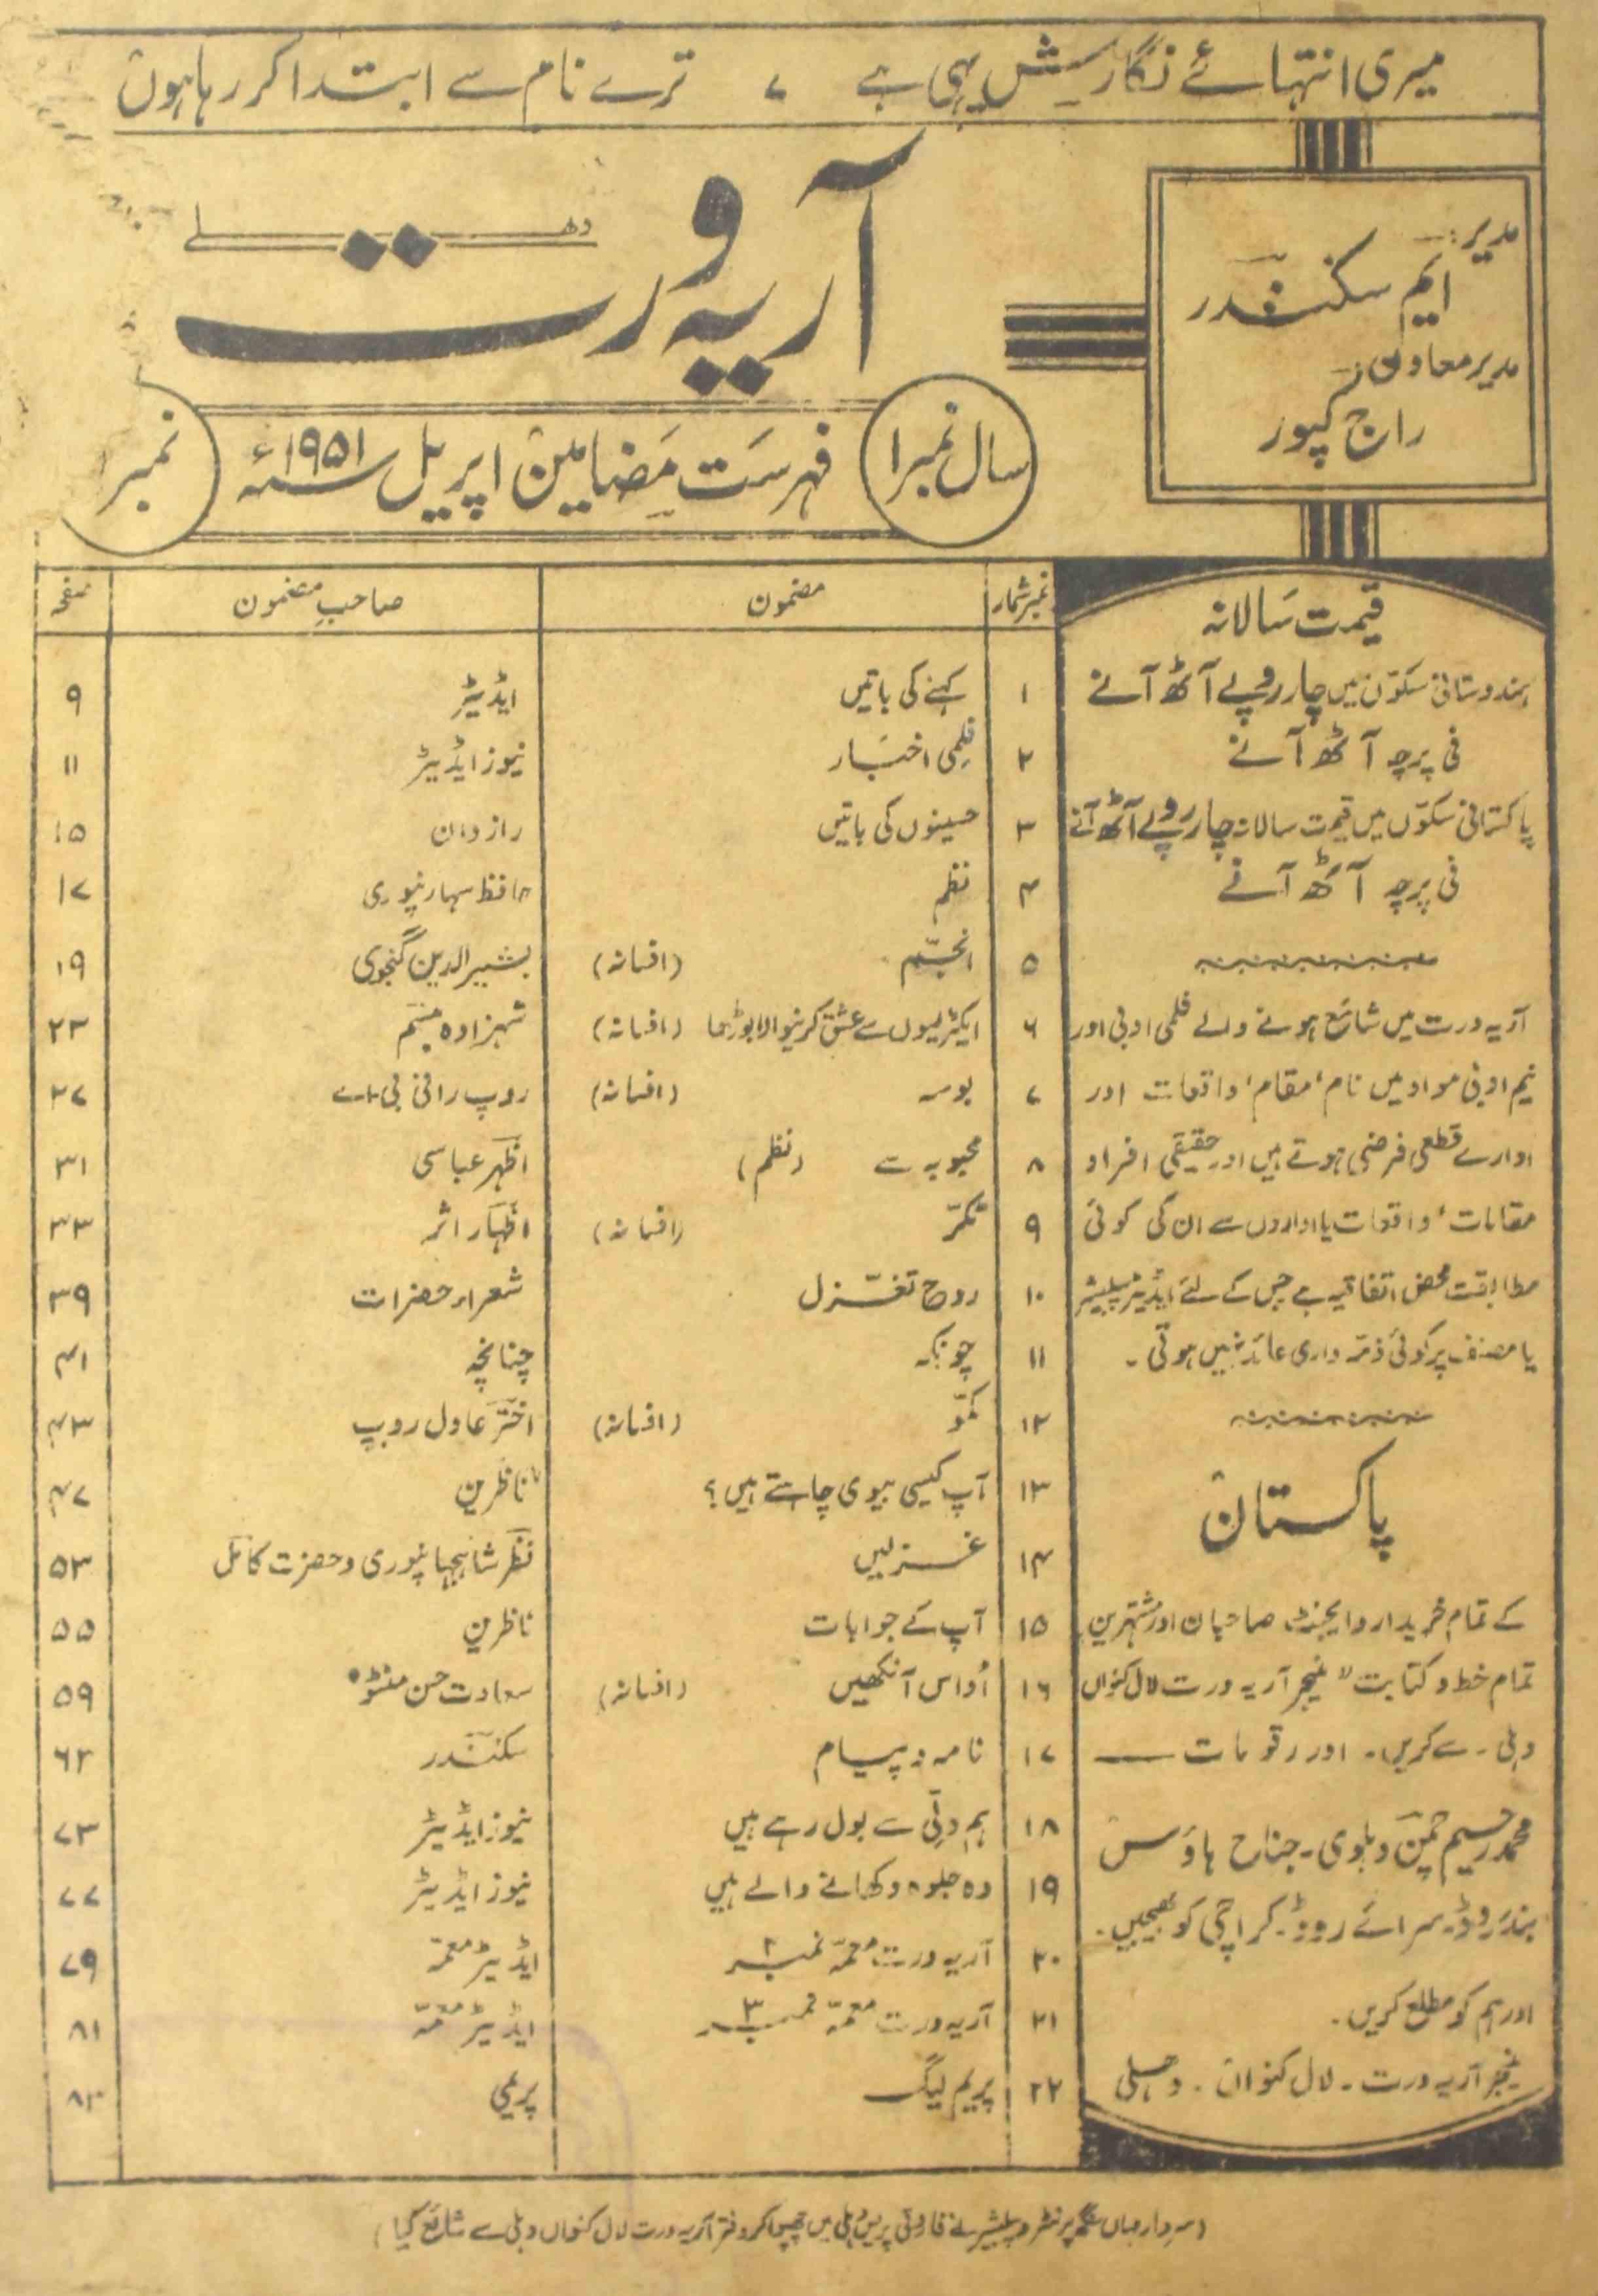 میری انتہائے نگارش یہی ہے ، ترے نام سے ابتدا کر رہا ہوں
آریہ ورت
دھلے
مدیر:
ایم سکندر
مدیر معاون
راج کپور
سال نمبر ۱
فہرست مضامین اپریل سنہ ۱۹۵۱ء
نمبر
قیمت سالانہ
ہندوستانی سکوں میں چار روپے آٹھ آنے
فی پرچہ آٹھ آنے
پاکستانی سکوں میں قیمت سالانہ چار روپے آٹھ آنے
فی پرچہ آٹھ آنے
آریہ ورت میں شائع ہونے والے فلمی ادبی اور
نیم ادبی مواد میں نام، مقام، واقعات اور
ادارے قطعی فرضی ہوتے ہیں اور حقیقی افراد
مقامات، واقعات یا اداروں سے ان کی کوئی
مطابقت محض اتفاقیہ ہے جس کے لئے ایڈیٹر پبلیشر
یا مصنف پر کوئی ذمہ داری عائد نہیں ہوتی ۔
پاکستان
کے تمام خریدار و ایجنٹ صاحبان اور مشتہرین
تمام خط و کتابت "منیجر آریہ ورت لال کنواں
دہلی ۔ سے کریں ۔ اور رقومات ــــ
محمد رحیم چمن دہلوی ۔ جناح ہاؤس
بندر روڈ ۔ سرائے روڈ ۔ کراچی کو بھیجیں ۔
اور ہم کو مطلع کریں ۔
منیجر آریہ ورت ۔ لال کنواں ۔ دہلی
نمبر شمار مضمون صاحبِ مضمون صفحہ
۱ کہنے کی باتیں ایڈیٹر ۹
۲ فلمی اخبار نیوز ایڈیٹر ۱۱
۳ حسینوں کی باتیں رازدان ۱۵
۴ نظم حافظ سہارنپوری ۱۷
۵ انجم (افسانہ) بشیر الدین گنجوی ۱۹
۶ ایکٹریسوں سے عشق کرنیوالا بوڑھا (افسانہ) شہزادہ تبسم ۲۳
۷ بوسہ (افسانہ) روپ رانی بی اے ۲۷
۸ محبوبہ سے (نظم) اظہر عباسی ۳۱
۹ ٹکر (افسانہ) اظہار اثر ۳۳
۱۰ روح تغزل شعراء حضرات ۳۹
۱۱ چونکہ چنانچہ ۴۱
۱۲ کمو (افسانہ) اختر عادل روپ ۴۳
۱۳ آپ کیسی بیوی چاہتے ہیں؟ ناظرین ۴۷
۱۴ غزلیں نظر شاہجہانپوری و حضرت کامل ۵۳
۱۵ آپ کے جوابات ناظرین ۵۵
۱۶ اُداس آنکھیں (افسانہ) سعادت حسن منٹو ۵۹
۱۷ نامہ و پیام سکندر ۶۳
۱۸ ہم دلّی سے بول رہے ہیں نیوز ایڈیٹر ۷۳
۱۹ وہ جلوہ دکھانے والے ہیں نیوز ایڈیٹر ۷۷
۲۰ آریہ ورت معمہ نمبر ۲ ایڈیٹر معمہ ۷۹
۲۱ آریہ ورت معمہ نمبر ۳ ایڈیٹر معمہ ۸۱
۲۲ پریم لیگ پریمی ۸۳
پرنٹر و پبلیشر نے فاروقی پریس دہلی میں چھپوا کر دفتر آریہ ورت لال کنواں دہلی سے شائع کیا)